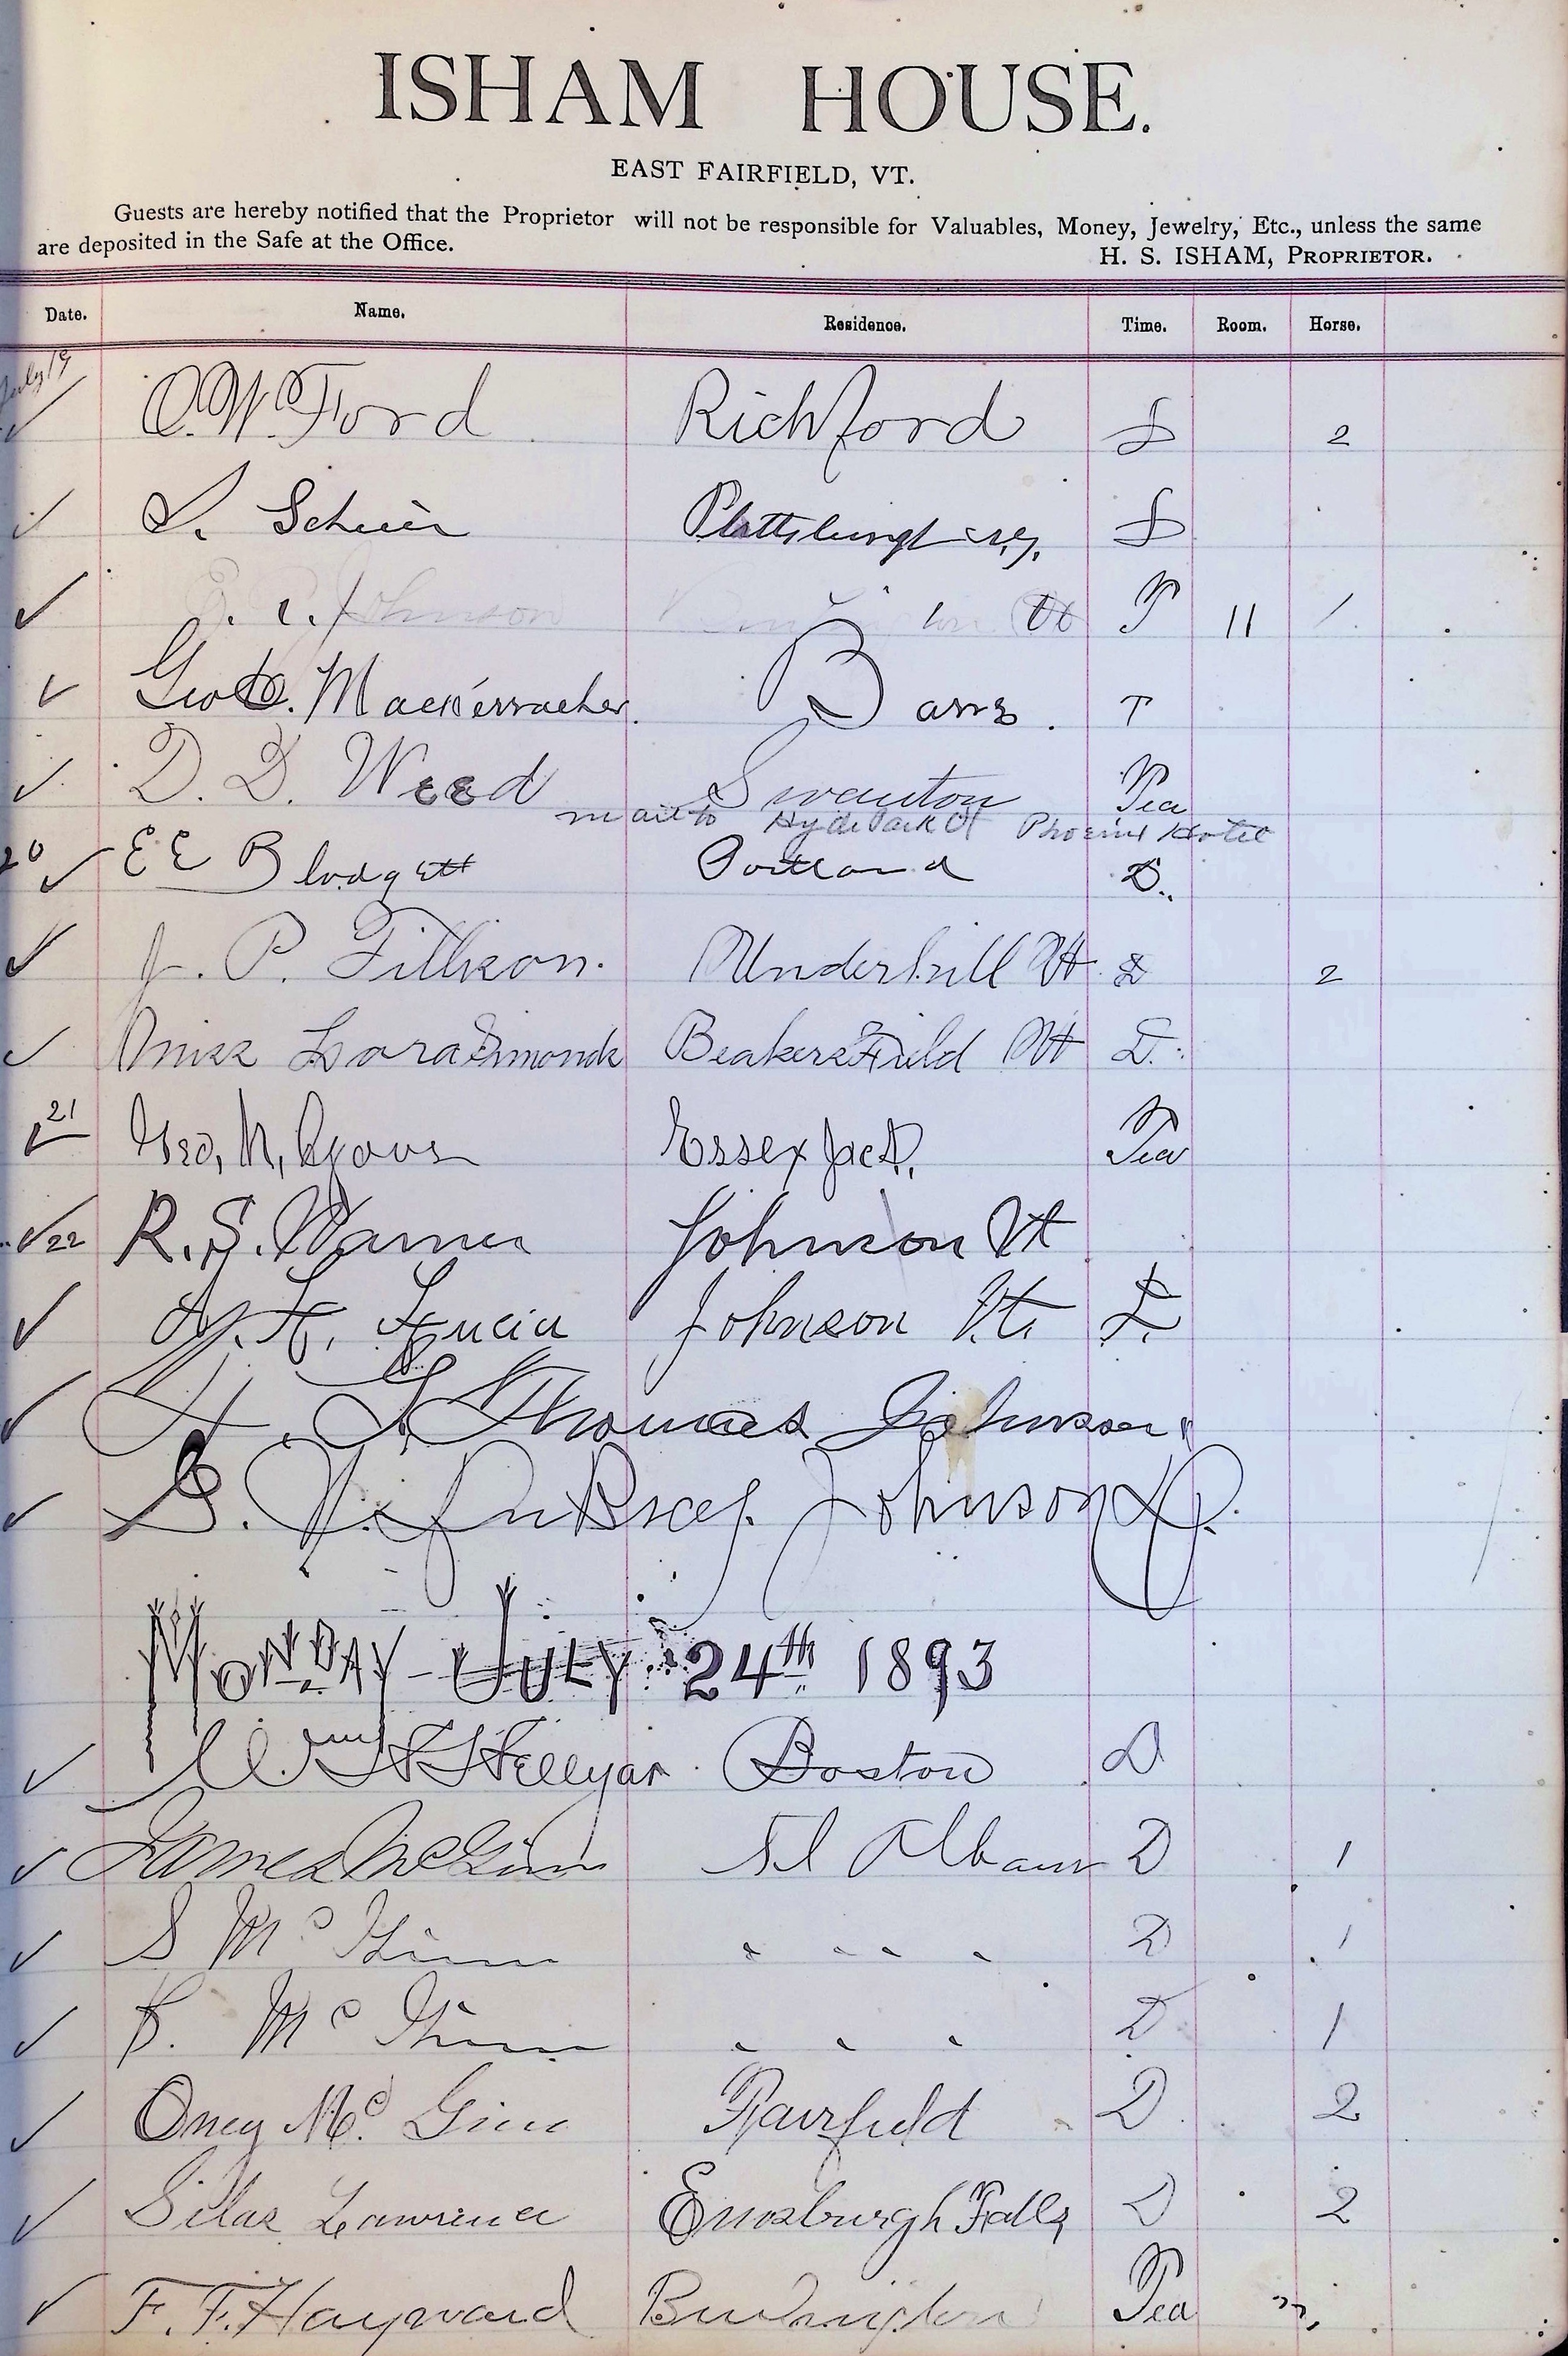 ISHAM HOUSE.
EAST FAIRFIELD, VT.
Guests are hereby notified that the Proprietor will not be responsible for Valuables, Money, Jewelry, Etc., unless the same
are deposited in the Safe at the Office.
H. S. ISHAM, PROPRIETOR.
Date. Name. Residence. Time. Room. Horse.
July 19
O. W. Ford Richford 2
S. Scheier Plattsburgh N.Y.
Johnson Vt 11 1
Geo Mackerracher. Barre. T
D. D. Weed Swanton Tea
mail to Hyde Park Vt Phoenix Hotel
20 E E Blodgett Portland D.
J. P. Tillison. Underhill Vt. D 2
Miss Lora Simonds Beakersfield Vt D.
21 Geo, N, Essex Jct. Tea
22 R. S. Warner Johnson Vt
Lucia Johnson Vt.
Thomas Johnson "
Johnson
MONDAY - JULY 24th 1893
Wm H Hellyar Boston D
James McGinn St Albans D 1
S McGinn " " " " D 1
McGinn " " " D 1
Oney McGinn Fairfield D. 2
Silas Lawrence Enosburgh Falls D 2
F. F. Hayward Burlington Tea